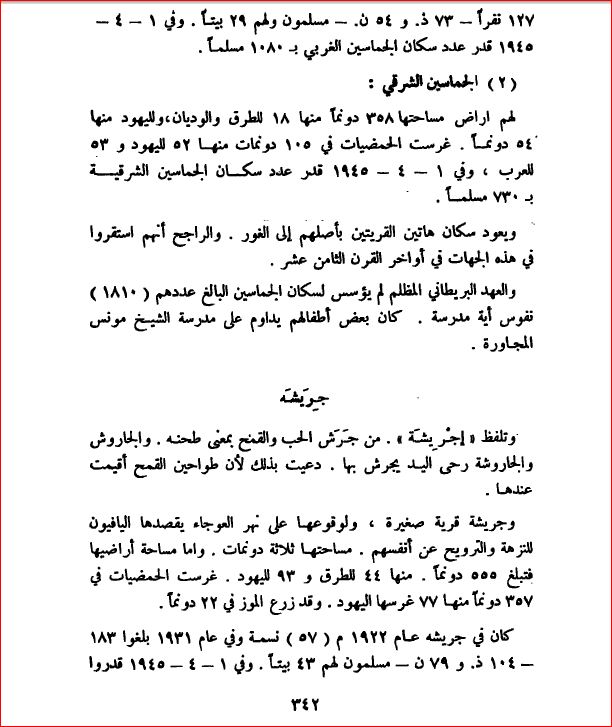 ١٢٧ نفراً — ٧٣ ذ. و ٥٤ ن. — مسلمون ولهم ٢٩ بيتـاً . وفي ١ — ٤ —
١٩٤٥ قدر عدد سكان الجماسين الغربي بـ ١٠٨٠ مسلمـاً .
( ٢ ) الجماسين الشرقي :
لهم اراض مساحتها ٣٥٨ دونمـاً منها ١٨ للطرق والوديان، ولليهود منها
٥٤ دونمــاً . غرست الحمضيات في ١٠٥ دونمات منهـا ٥٢ لليهود و ٥٣
للعرب ، وفي ١ — ٤ — ١٩٤٥ قدر عدد سكــان الجماسين الشرقيــة
بـ ٧٣٠ مسلمـاً .
ويعود سكان هاتين القريتين بأصلهم إلى الغور . والراجح أنهم استقروا
في هذه الجهات في أواخر القرن الثامن عشر .
والعهد البريطاني المظلم لم يؤسس لسكان الجماسين البالغ عددهم ( ١٨١٠ )
نفوس أية مدرسة . كان بعض أطفالهم يداوم على مدرسة الشيـخ مونس
المجـاورة .
جـرِيشـَه
وتلفظ « إجْرِيشَة » . من جـَرَش الحب والقمح بمعنى طحنـه . والجاروش
والجاروشة رحى اليـد يجرش بهـا . دعيت بذلك لأن طواحين القمح أقيمت
عندهـا .
وجريشة قرية صغيرة ، ولوقوعهـا على نهر العوجاء يقصدها اليافيون
للنزهة والترويح عن أنفسهم . مساحتهـا ثلاثة دونمات . واما مساحة أراضيها
فتبلغ ٥٥٥ دونمـاً . منهـا ٤٤ للطرق و ٩٣ لليهود . غرست الحمضيات في
٣٥٧ دونمـاً منهـا ٧٧ غرسها اليهود . وقد زرع الموز في ٢٢ دونمـاً .
كان في جريشه عـام ١٩٢٢ م ( ٥٧ ) نسمة وفي عام ١٩٣١ بلغوا ١٨٣
— ١٠٤ ذ. و ٧٩ ن — مسلمون لهم ٤٣ بيتـاً . وفي ١ — ٤ — ١٩٤٥ قدروا
٣٤٢